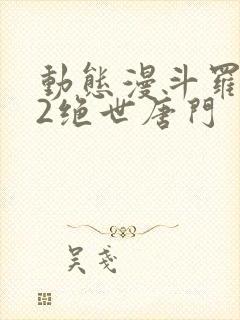 動態漫斗羅
2绝世唐門
吴戔